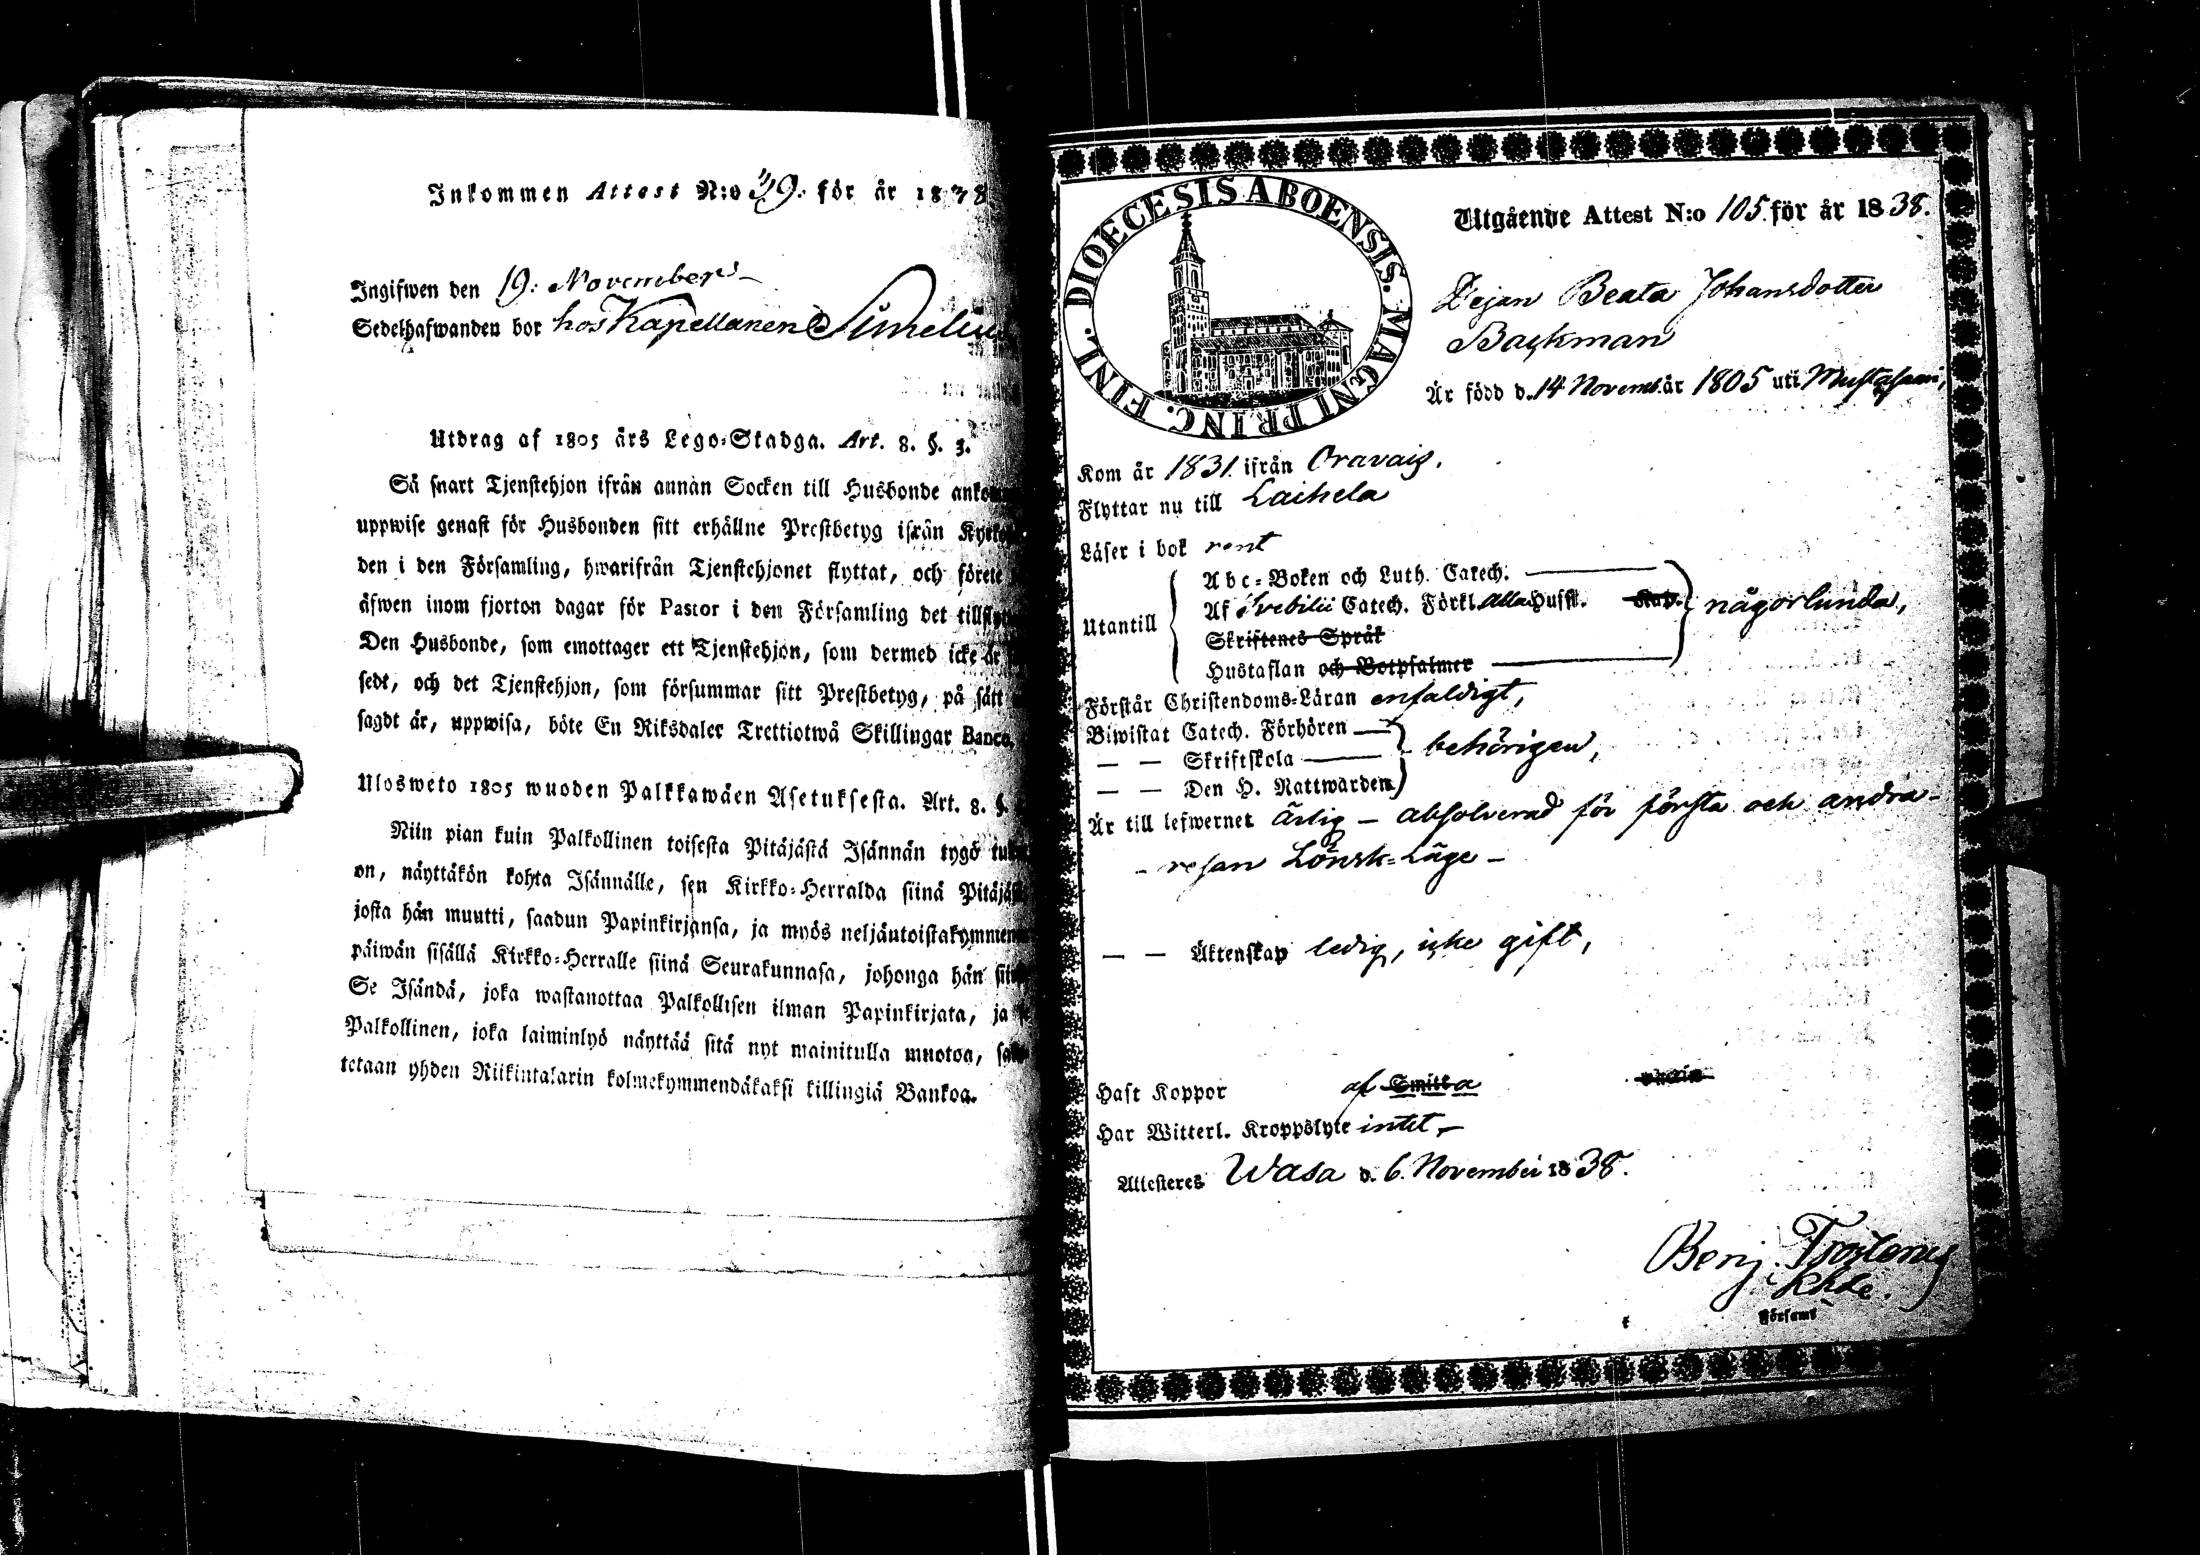 Inkommen Attest N:o 39. för år 1838
Ingifwen den 19. November
Sedelhafwanden bor hos Kapellanen Simelius
Utdrag af 1805 års Lego-Stadga. Art. 8. §. 3.
Så snart Tjenstehjon ifrån annan Socken till Husbonde
uppwise genast för Husbonden sitt erhållne Prestbetyg ifrån
den i den Församling, hwarifrån Tjenstehjonet flyttat, och förete
äfwen inom fjorton dagar för Pastor i den Församling det
Den Husbonde, som emottager ett Tjenstehjon, som dermed icke är
sedt, och det Tjenstehjon, som försummar sitt Prestbetyg, på sätt
sagdt är, uppwisa, böte En Riksdaler Trettiotwå Skillingar Banco.
Ulosweto 1805 wuoden Palkkawäen Asetuksesta. Art. 8. §.
Niin pian kuin Palkollinen toisesta Pitäjästä Isännän tygö
on, näyttäkön kohta Isännälle, sen Kirkko-Herralda siinä
josta hän muutti, saadun Papinkirjansa, ja myös neljäntoistakymmenen
päiwän sisällä Kirkko-Herralle siinä Seurakunnasa, johonga hän
Se Isändä, joka wastanottaa Palkollisen ilman Papinkirjata, ja
Palkollinen, joka laiminlyö näyttää sitä nyt mainitulla muotoa,
tetaan yhden Riikintalarin kolmekymmendäkaksi killingiä Bankoa.
DIOECESIS ABOENSIS. MAGNI PRINC. FINL.
Utgående Attest N:o 105. för år 1838.
Pejan Beata Johansdotter
Backman
Är född d. 14 Novemb. år 1805 uti Mustasaari,
Kom år 1831. ifrån Oravais.
Flyttar nu till Laihela
Läser i bok rent
Utantill
Abc-Boken och Luth. Catech.
Af Svebilii Catech. Förkl. Alla Husst. Kap. någorlunda,
Skriftenes Språk
Hustaflan och Botpsalmer
Förstår Christendoms-Läran enfaldigt,
Biwistat Catech. Förhören
— — Skriftskola behörigen,
— — Den H. Nattwarden
Är till lefwernet ärlig – absolverad för första och andra
- resan Lönsk-Läge –
— — Äktenskap ledig, icke gift,
Haft Koppor af Smitta
Har Witterl. Kroppslyte intet,
Attesteres Wasa d. 6. November 1838.
Benj.
Församl